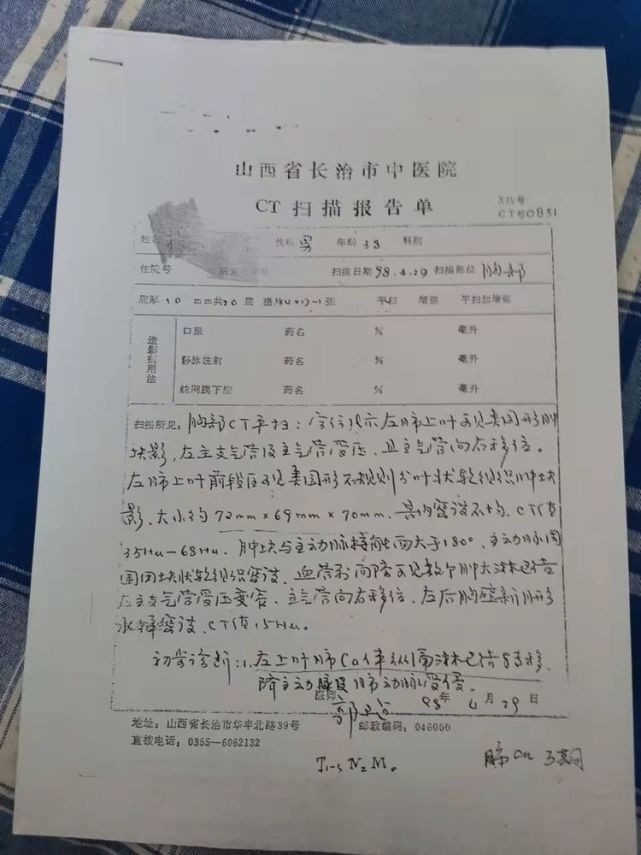 山西省长治市中医院
CT 扫描报告单
X线号
CT号0851
姓名 性别 男 年龄 38 科别
住院号 扫描日期 98.4.29 扫描部位 胸部
层厚 10 mm共20层 平扫 增强 平扫加增强
造影剂用法
口服 药名 % 毫升
静脉注射 药名 % 毫升
蛛网膜下腔 药名 % 毫升
扫描所见: 胸部CT平扫: 定位提示左肺上叶可见类园形肿
块影, 左主支气管及主气管受压, 且主气管向右移位。
左肺上叶前段区可见类园形不规则分叶状软组织肿块
影、大小约72mm×69mm×70mm. 其内密度不均, CT值
35Hu-68Hu. 肿块与主动脉接触面大于180°. 主动脉周
围团块状软组织密度. 血管前间隙可见数个肿大淋巴结
左主支气管受压变窄. 主气管向右移位. 左后胸壁新月形
水样密度. CT值15Hu。
初步诊断: 1. 左上叶肺Ca伴纵隔淋巴结转移.
主动脉及肺动脉受侵.
医师 98年 4月 29日
地址: 山西省长治市华丰北路39号 邮政编码: 046000
直拨电话: 0355-6062132
T₁₋₃ N₂ M₀
肺Ca 3期